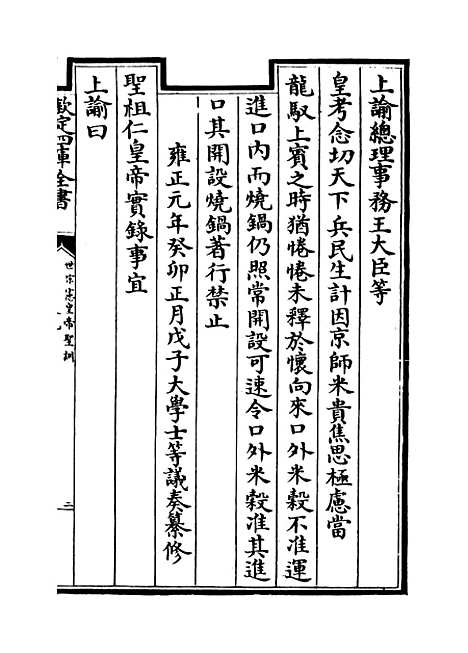 上諭總理事務王大臣等
皇考念切天下兵民生計因京師米貴焦思極慮當
龍馭上賓之時猶惓惓未釋於懷向來口外米糓不准運
進口內而燒鍋仍照常開設可速令口外米糓准其進
口其開設燒鍋著行禁止
雍正元年癸卯正月戊子大學士等議奏纂修
聖祖仁皇帝實錄事宜
上諭曰
欽定四庫全書
世宗憲皇帝聖訓
三